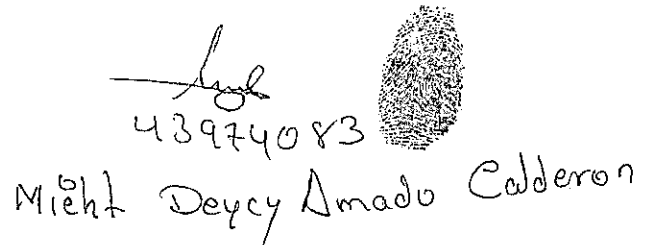 43974083
Mieht Deycy Amado Calderon